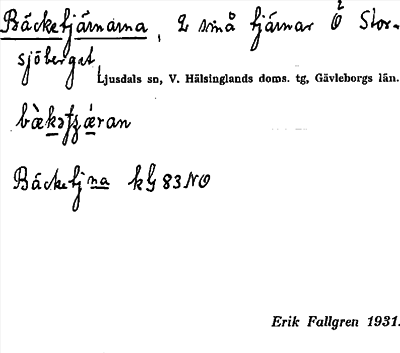 Bäcketjärnarna, 2 små tjärnar Ö Stor-
sjöberget,
Ljusdals sn, V. Hälsinglands doms. tg, Gävleborgs län.
Bäcketjna kG 83 NO
Erik Fallgren 1931.